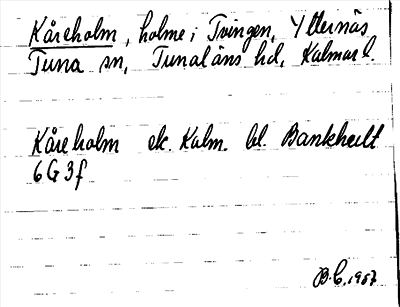 Kåreholm, holme i Tvingen, Ytternäs
Tuna sn, Tunaläns hd, Kalmar l.
Kåreholm ek. Kalm. bl. Bankhult
6G3f
B.C. 1957